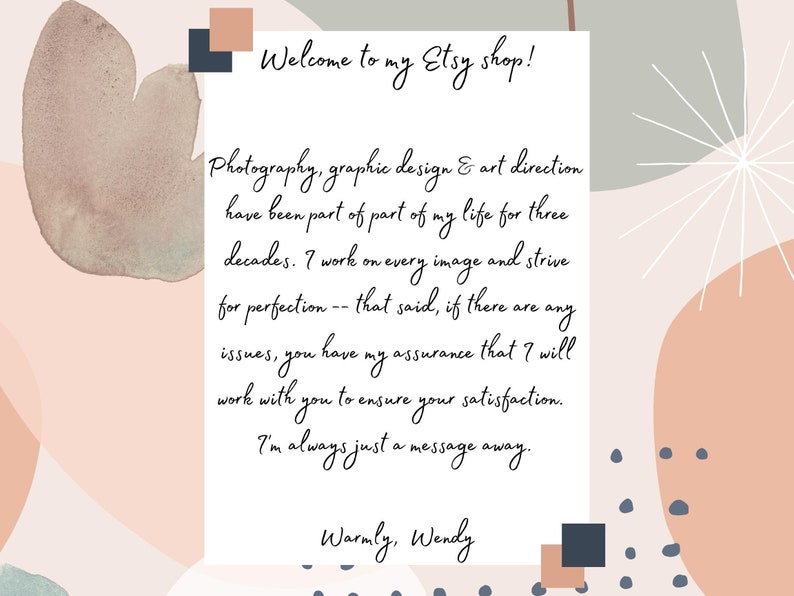 Welcome to my Etsy shop!
Photography, graphic design & art direction
have been part of part of my life for three
decades. I work on every image and strive
for perfection -- that said, if there are any
issues, you have my assurance that I will
work with you to ensure your satisfaction.
I'm always just a message away.
Warmly, Wendy